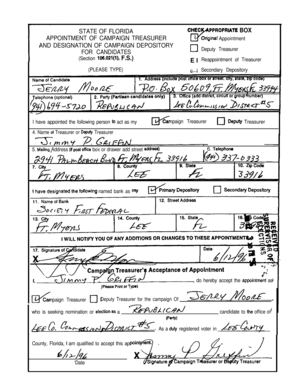 STATE OF FLORIDA
APPOINTMENT OF CAMPAIGN TREASURER
AND DESIGNATION OF CAMPAIGN DEPOSITORY
FOR CANDIDATES
(Section 106.021(1), F.S.)
(PLEASE TYPE)
CHECK APPROPRIATE BOX
Original Appointment
Deputy Treasurer
Reappointment of Treasurer
Secondary Depository
Name of Candidate
JERRY MOORE
1. Address (include post office box or street, city, state, zip code)
P.O. BOX 50609, FT. MYERS, FL 33994
Telephone (optional)
(941) 694-5720
2. Party (Partisan candidates only)
REPUBLICAN
3. Office (add district, circuit or group number)
LEE COMMISSION DISTRICT #5
I have appointed the following person to act as my
Campaign Treasurer
Deputy Treasurer
4. Name of Treasurer or Deputy Treasurer
JIMMY P. GRIFFIN
5. Mailing Address (If post office box or drawer add street address)
2941 PALM BEACH BLVD FT. MYERS, FL 33916
6. Telephone
7. City
FT. MYERS
8. County
LEE
9. State
FL
10. Zip Code
33916
I have designated the following named bank as my
Primary Depository
Secondary Depository
11. Name of Bank
SOCIETY FIRST FEDERAL
12. Street Address
13. City
FT. MYERS
14. County
LEE
15. State
FL
16. Zip Code
I WILL NOTIFY YOU OF ANY ADDITIONS OR CHANGES TO THESE APPOINTMENTS
17. Signature of Candidate
X
Date
6/12/96
Campaign Treasurer's Acceptance of Appointment
I, JIMMY P. GRIFFIN, do hereby accept the appointment as
Campaign Treasurer
Deputy Treasurer for the campaign of JERRY MOORE
who is seeking nomination or election as a REPUBLICAN candidate to the office of
(Party)
LEE CO. COMMISSION DISTRICT #5. As a duly registered voter in LEE COUNTY
County, Florida, I am qualified to accept this appointment.
6/12/96
Date
X Jimmy P. Griffin
Signature of Campaign Treasurer or Deputy Treasurer